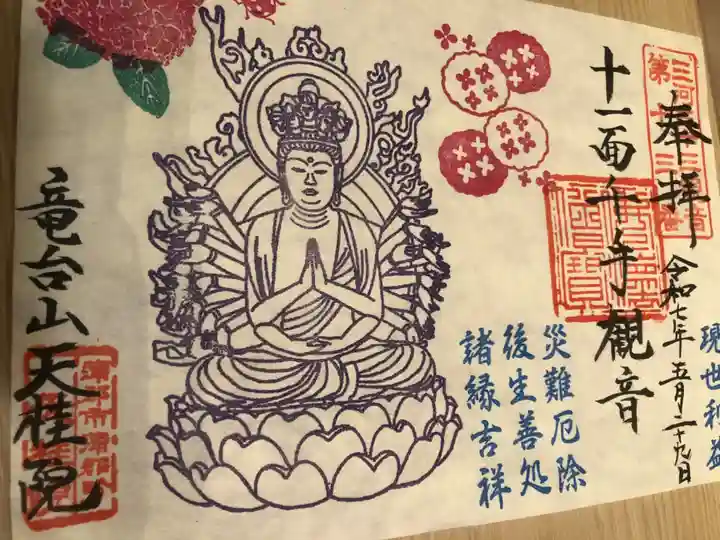 奉拝
令和七年五月二十九日
十一面千手観音
現世利益
災難厄除
後生善処
諸縁吉祥
竜台山天桂院